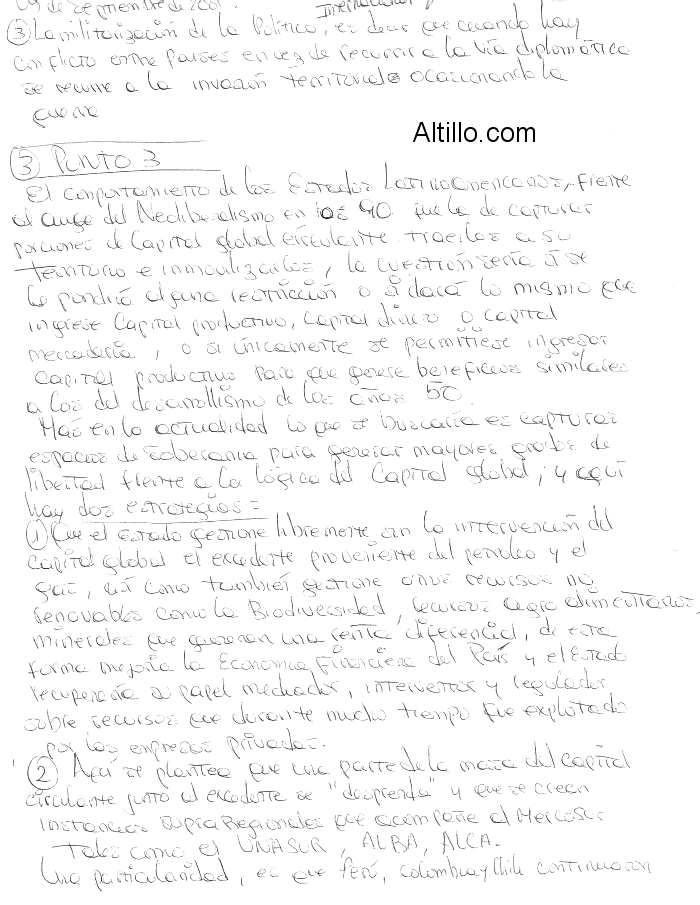 de septiembre de 2001. Internacional
③ La militarización de la Política, es decir que cuando hay
conflicto entre Países en vez de recurrir a la vía diplomática
se recurre a la invasión territorial ocasionando la
guerra
Altillo.com
③ PUNTO 3
El comportamiento de los Estados Latinoamericanos, frente
al auge del Neoliberalismo en los 90 fue la de capturar
porciones de Capital global circulante traerlos a su
territorio e inmovilizarlos, la cuestión sería si se
le pondrá alguna restricción o si dará lo mismo que
ingrese Capital productivo, capital dinero o capital
mercadería, o si únicamente se permitiese ingresar
Capital productivo para que genere beneficios similares
a los del desarrollismo de los años 50.
Mas en la actualidad lo que se buscaría es capturar
espacios de soberania para generar mayores grados de
libertad frente a la lógica del Capital global, y aquí
hay dos estrategias =
① Que el Estado gestione libremente sin la intervención del
Capital global el excedente proveniente del petroleo y el
gas, así como también gestione otros recursos no
renovables como la Biodiversidad, recursos agroalimentarios,
minerales que generan una renta diferencial, de esta
forma mejoria la Economia Financiera del País y el Estado
recuperaria su papel mediador, interventor y regulador
sobre recursos que durante mucho tiempo fue explotado
por las empresas privadas.
② Aquí se plantea que una parte de la masa del capital
circulante junto al excedente se "desprenda" y que se crean
instancias SupraRegionales que acompañe al Mercosur
Tales como el UNASUR, ALBA, ALCA.
Una particularidad, es que Perú, Colombia y Chile continuaron